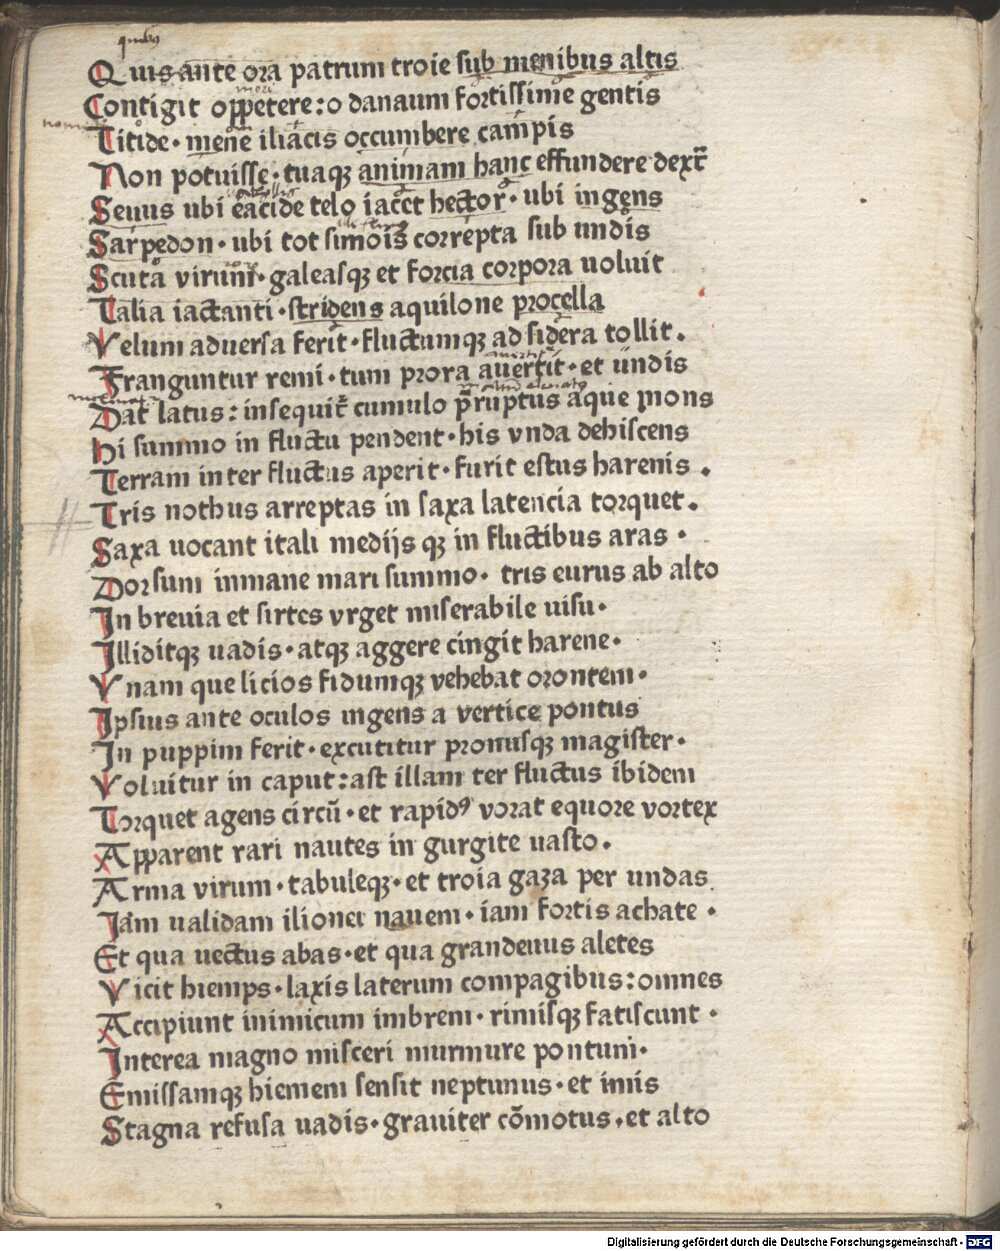 Quis ante ora patrum troie sub menibus altis
Contigit oppetere: o danaum fortissime gentis
Titide · mene iliacis occumbere campis
Non potuisse · tuaqȝ animam hanc effundere dext̄
Seuus ubi eacide telo iacet hector · ubi ingens
Sarpedon · ubi tot simois correpta sub undis
Scuta virum · galeasqȝ et forcia corpora uoluit
Talia iactanti · stridens aquilone procella
Velum aduersa ferit · fluctumqȝ ad sidera tollit .
Franguntur remi · tum prora auertit · et undis
Dat latus: insequit̄ cumulo p̄ruptus aque mons
hi summo in fluctu pendent · his vnda dehiscens
Terram inter fluctus aperit · furit estus harenis .
Tris nothus arreptas in saxa latencia torquet .
Saxa uocant itali medijs qȝ in fluctibus aras ·
Dorsum inmane mari summo · tris eurus ab alto
In breuia et sirtes vrget miserabile uisu ·
Illiditqȝ uadis · atqȝ aggere cingit harene ·
Vnam que licios fidumqȝ vehebat orontem ·
Ipsius ante oculos ingens a vertice pontus
In puppim ferit · excutitur pronusqȝ magister ·
Voluitur in caput: ast illam ter fluctus ibidem
Torquet agens circū · et rapidꝰ vorat equore vortex
Apparent rari nautes in gurgite uasto .
Arma virum · tabuleqȝ · et troia gaza per undas
Iam ualidam ilionei nauem · iam fortis achate ·
Et qua uectus abas · et qua grandeuus aletes
Vicit hiemps · laxis laterum compagibus: omnes
Accipiunt inimicum imbrem · rimisqȝ fatiscunt ·
Interea magno misceri murmure pontum ·
Emissamqȝ hiemem sensit neptunus · et imis
Stagna refusa uadis · grauiter cōmotus . et alto
Digitalisierung gefördert durch die Deutsche Forschungsgemeinschaft · DFG